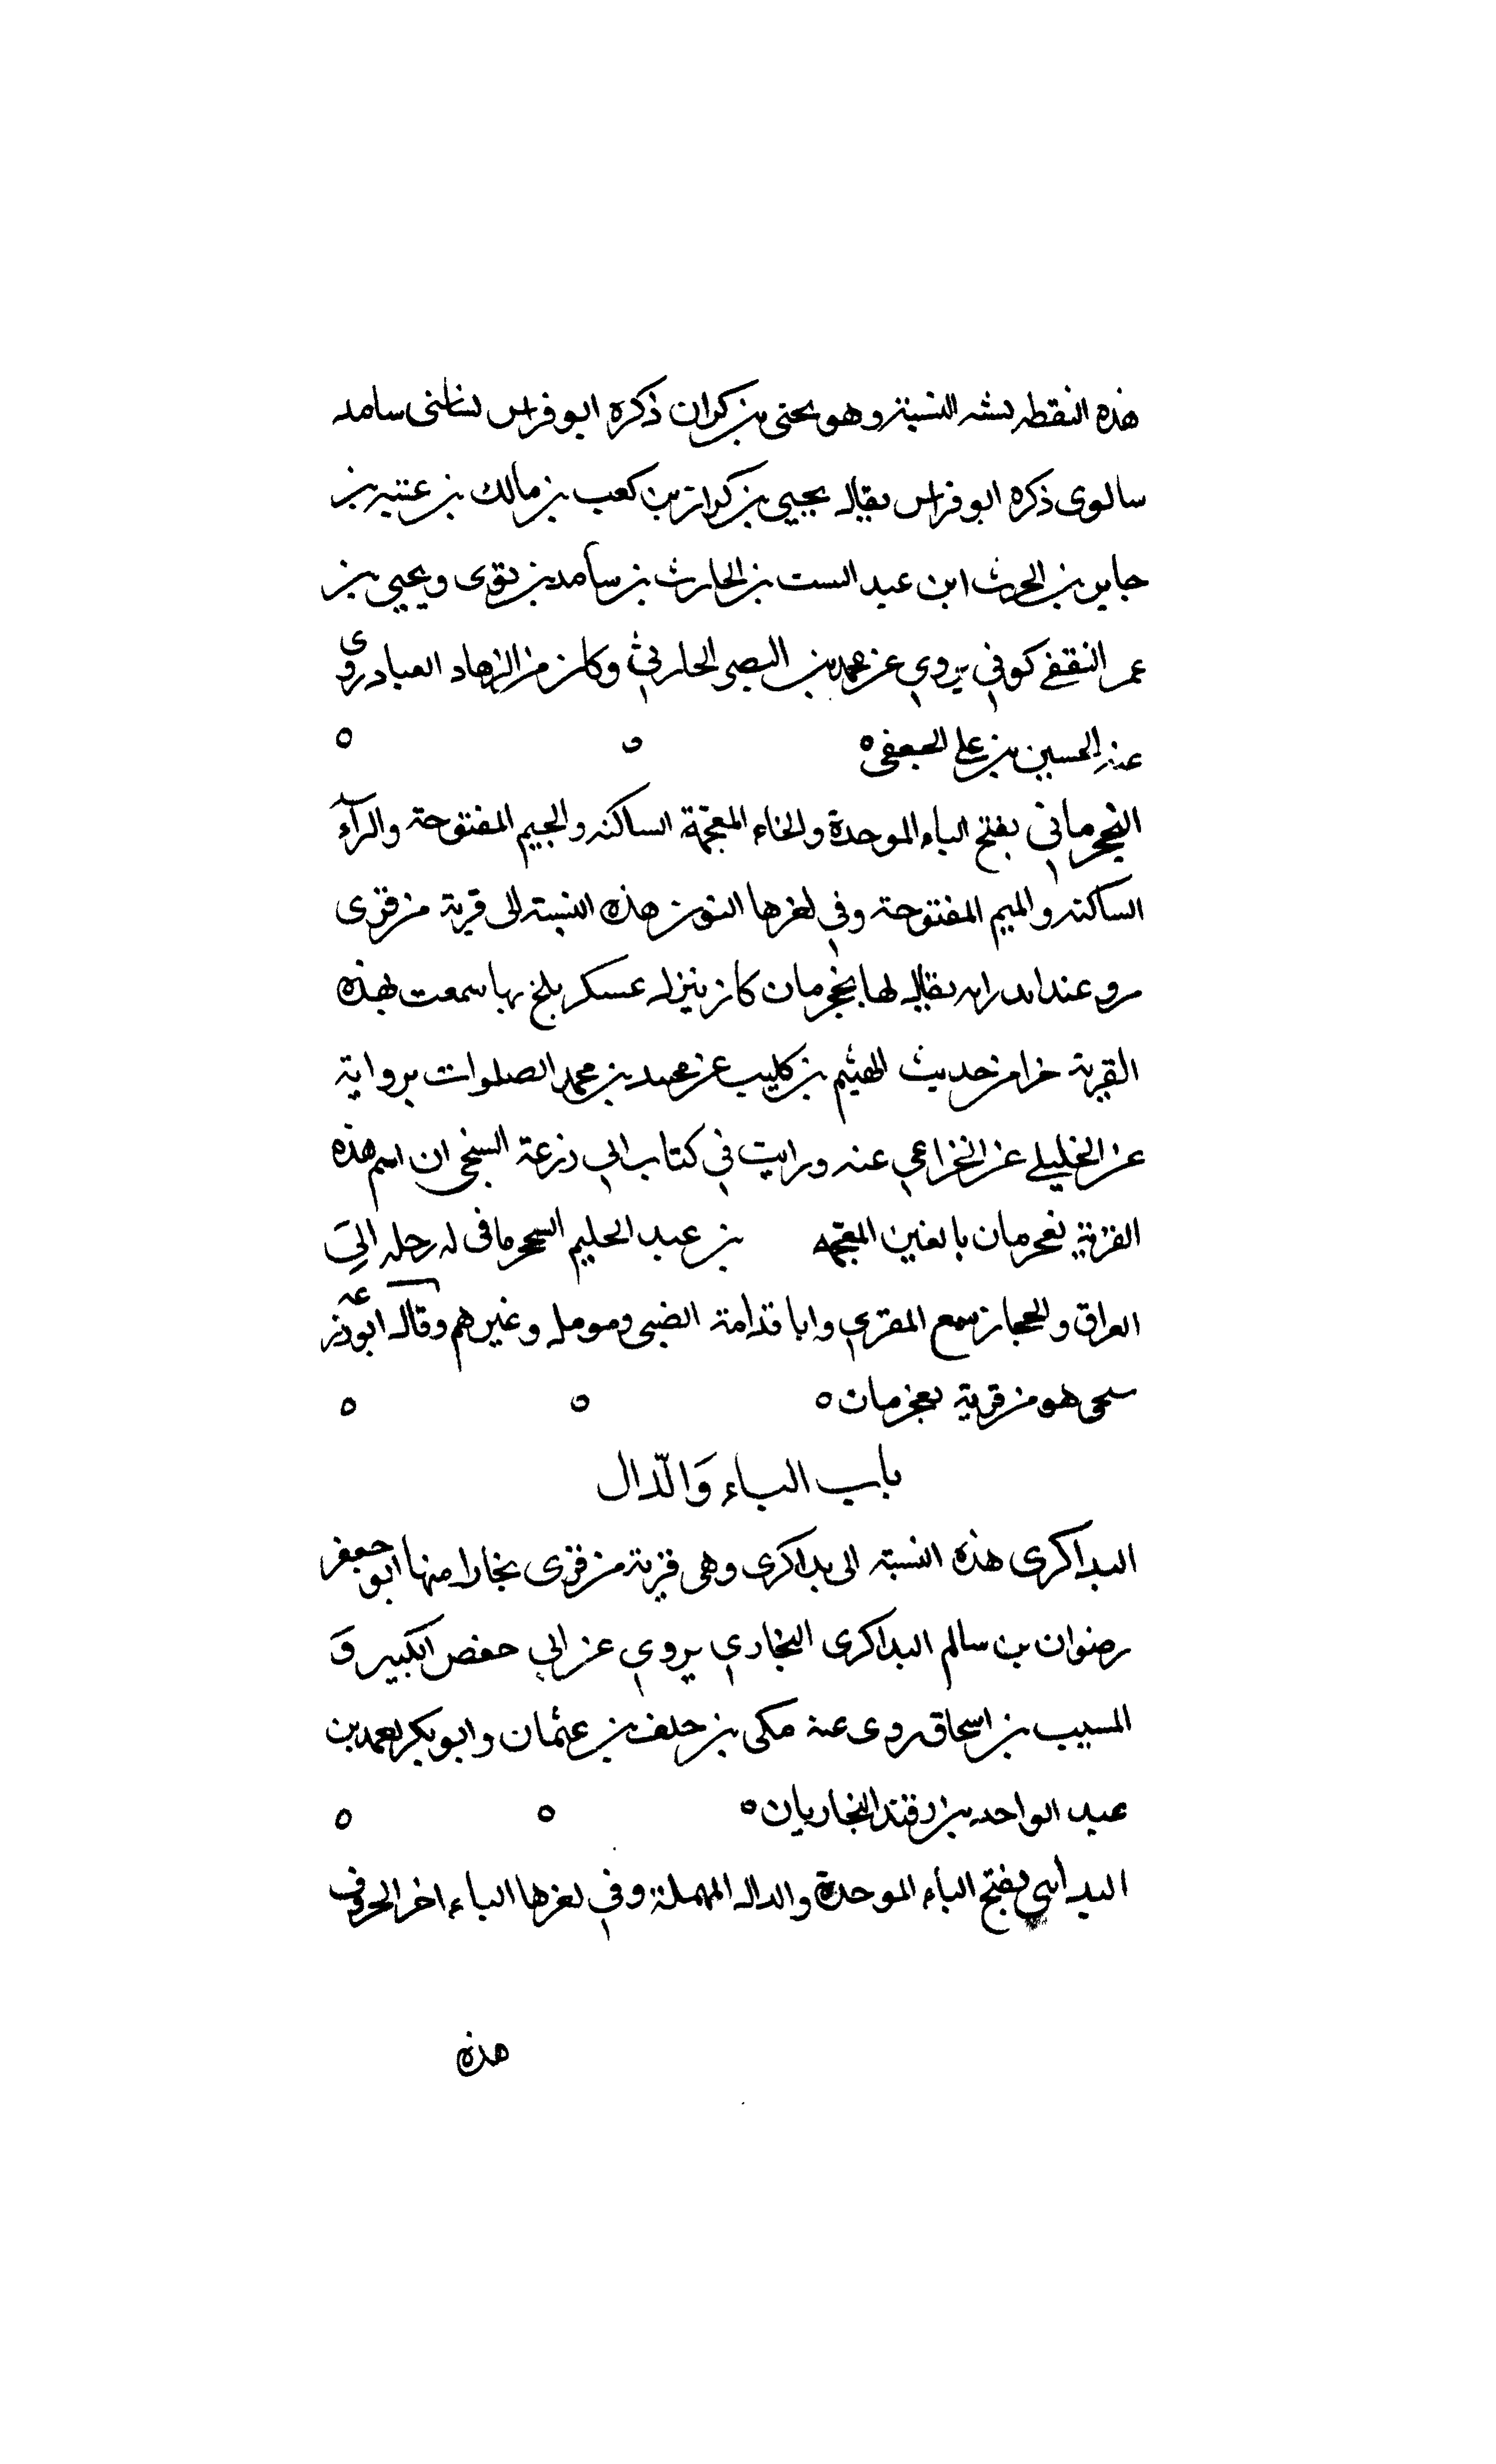 هذه النقطه بشبه النسبة وهو يحيى بن كران ذكره ابو فراس
ذكره ابو فراس يقال يحيى بن كران بن كعب بن مالك بن عنبه بن
جابر بن الحرث ابن عبد البيت بن الحارث بن سامه بن لوى ويحيى بن
عمر الثقفي كوفي يروي عن محمد بن النضر الحارثي وكان من الزهاد العباد روى
عنه الحسين بن علي الجعفي ه ه ه
البخجرماني بفتح الباء الموحدة والخاء المعجمة الساكنه والجيم المفتوحة والرآء
الساكنه والميم المفتوحة وفي اخرها النون هذه النسبة الى قرية من قرى
مرو عند يقال لها بخجرمان كان ينزل عسكر بلخ بها سمعت بهذه
القرية جزا من حديث الهيثم بن كليب عن محمد بن محمد الصلوات برواية
عن الخليلي عن الخزاعي عنه ورايت في كتاب ابي زرعة السنجي ان اسم هذه
القرية بغجرمان بالغين المعجمه بن عبد الحليم البخجرماني له رحله الى
العراق والحجاز سمع المقري وابا قدامة الضبي ومومل وغيرهم وقال ابو زرعه
سنجى هو من قرية بغجرمان ه ه ه
باب الباء وَالدّال
البداكرى هذه النسبة الى بداكرى وهى قرية من قرى بخارا منها ابو جعفر
رضوان بن سالم البداكرى البخاري يروي عن ابي حفص الكبير وَ
المسيب بن اسحاق روى عنه مكى بن خلف بن عثمان وابو بكر محمد بن
عبد الواحد بن رفند البخاريان ه ه ه
البداىي بفتح الباء الموحدة والدال المهملة وفي اخرها الياء اخر الحروف
هذه